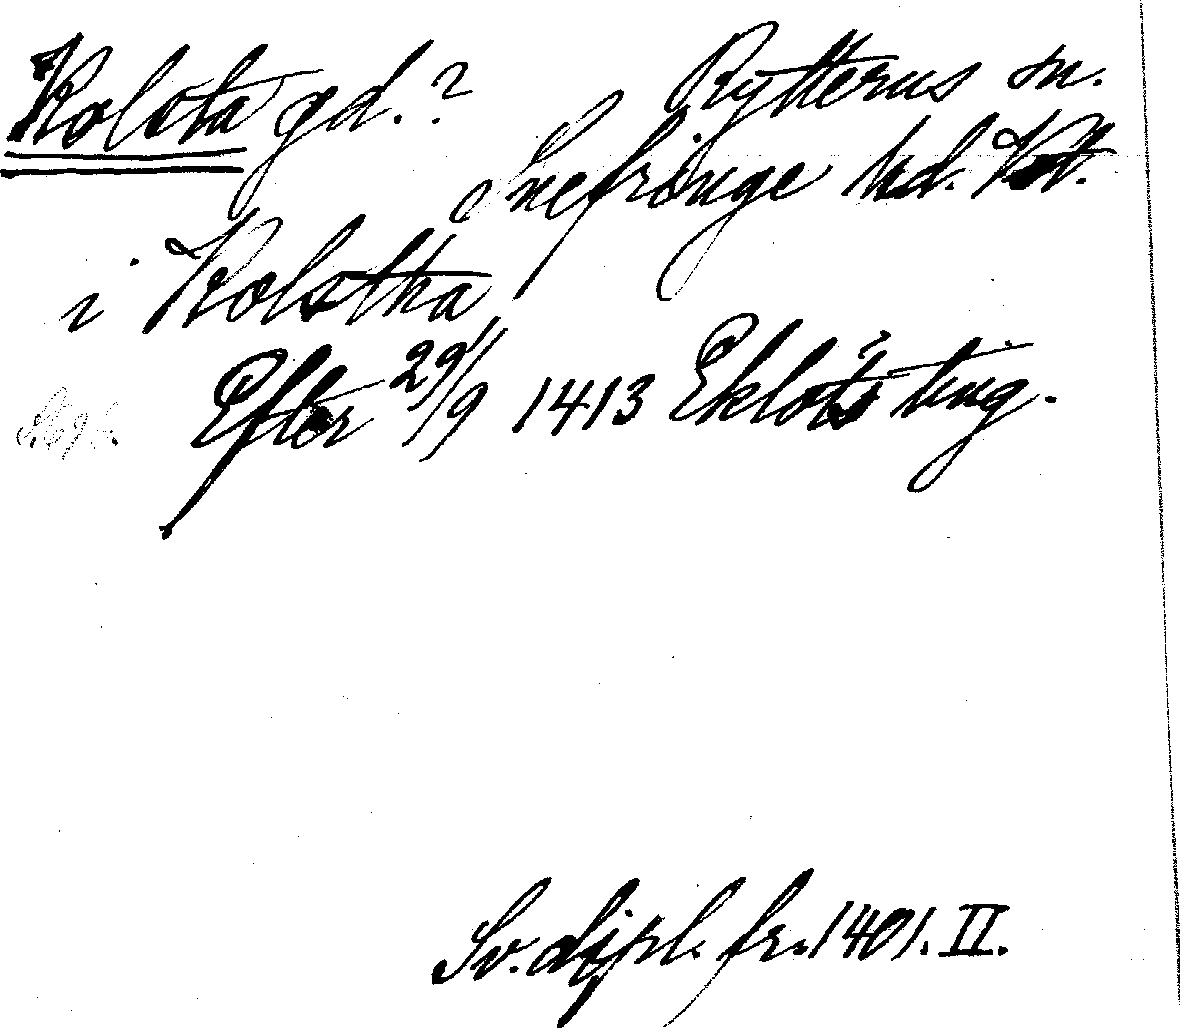 Kolsta gd.? Rytterus sn.
Snefringe hd. Vstm.
i Kolstha
Efter 29/9 1413 Eklöts ting.
Sv. dipl. fr. 1401. II.